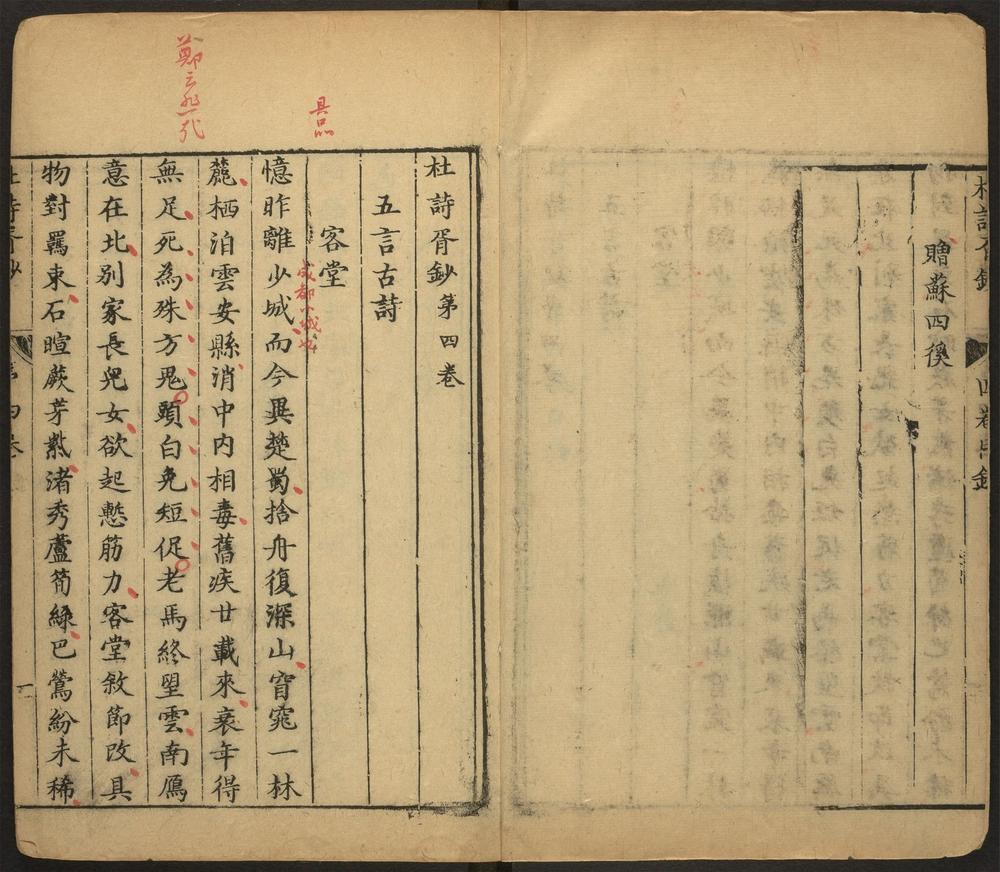 贈蘇四徯
杜詩胥鈔
四卷目錄
杜詩胥鈔第四卷
五言古詩
客堂
具品
成都小城也
憶昨離少城而今異楚蜀捨舟復深山窅窕一林
麓栖泊雲安縣消中內相毒舊疾廿載來衰年得
無足死為殊方鬼頭白免短促老馬終望雲南鴈
鄭云
意在北別家長兒女欲起慙筋力客堂敘節改具
物對羈束石暄蕨芽紫渚秀蘆筍綠巴鶯紛未稀
杜詩胥鈔
第四卷
一